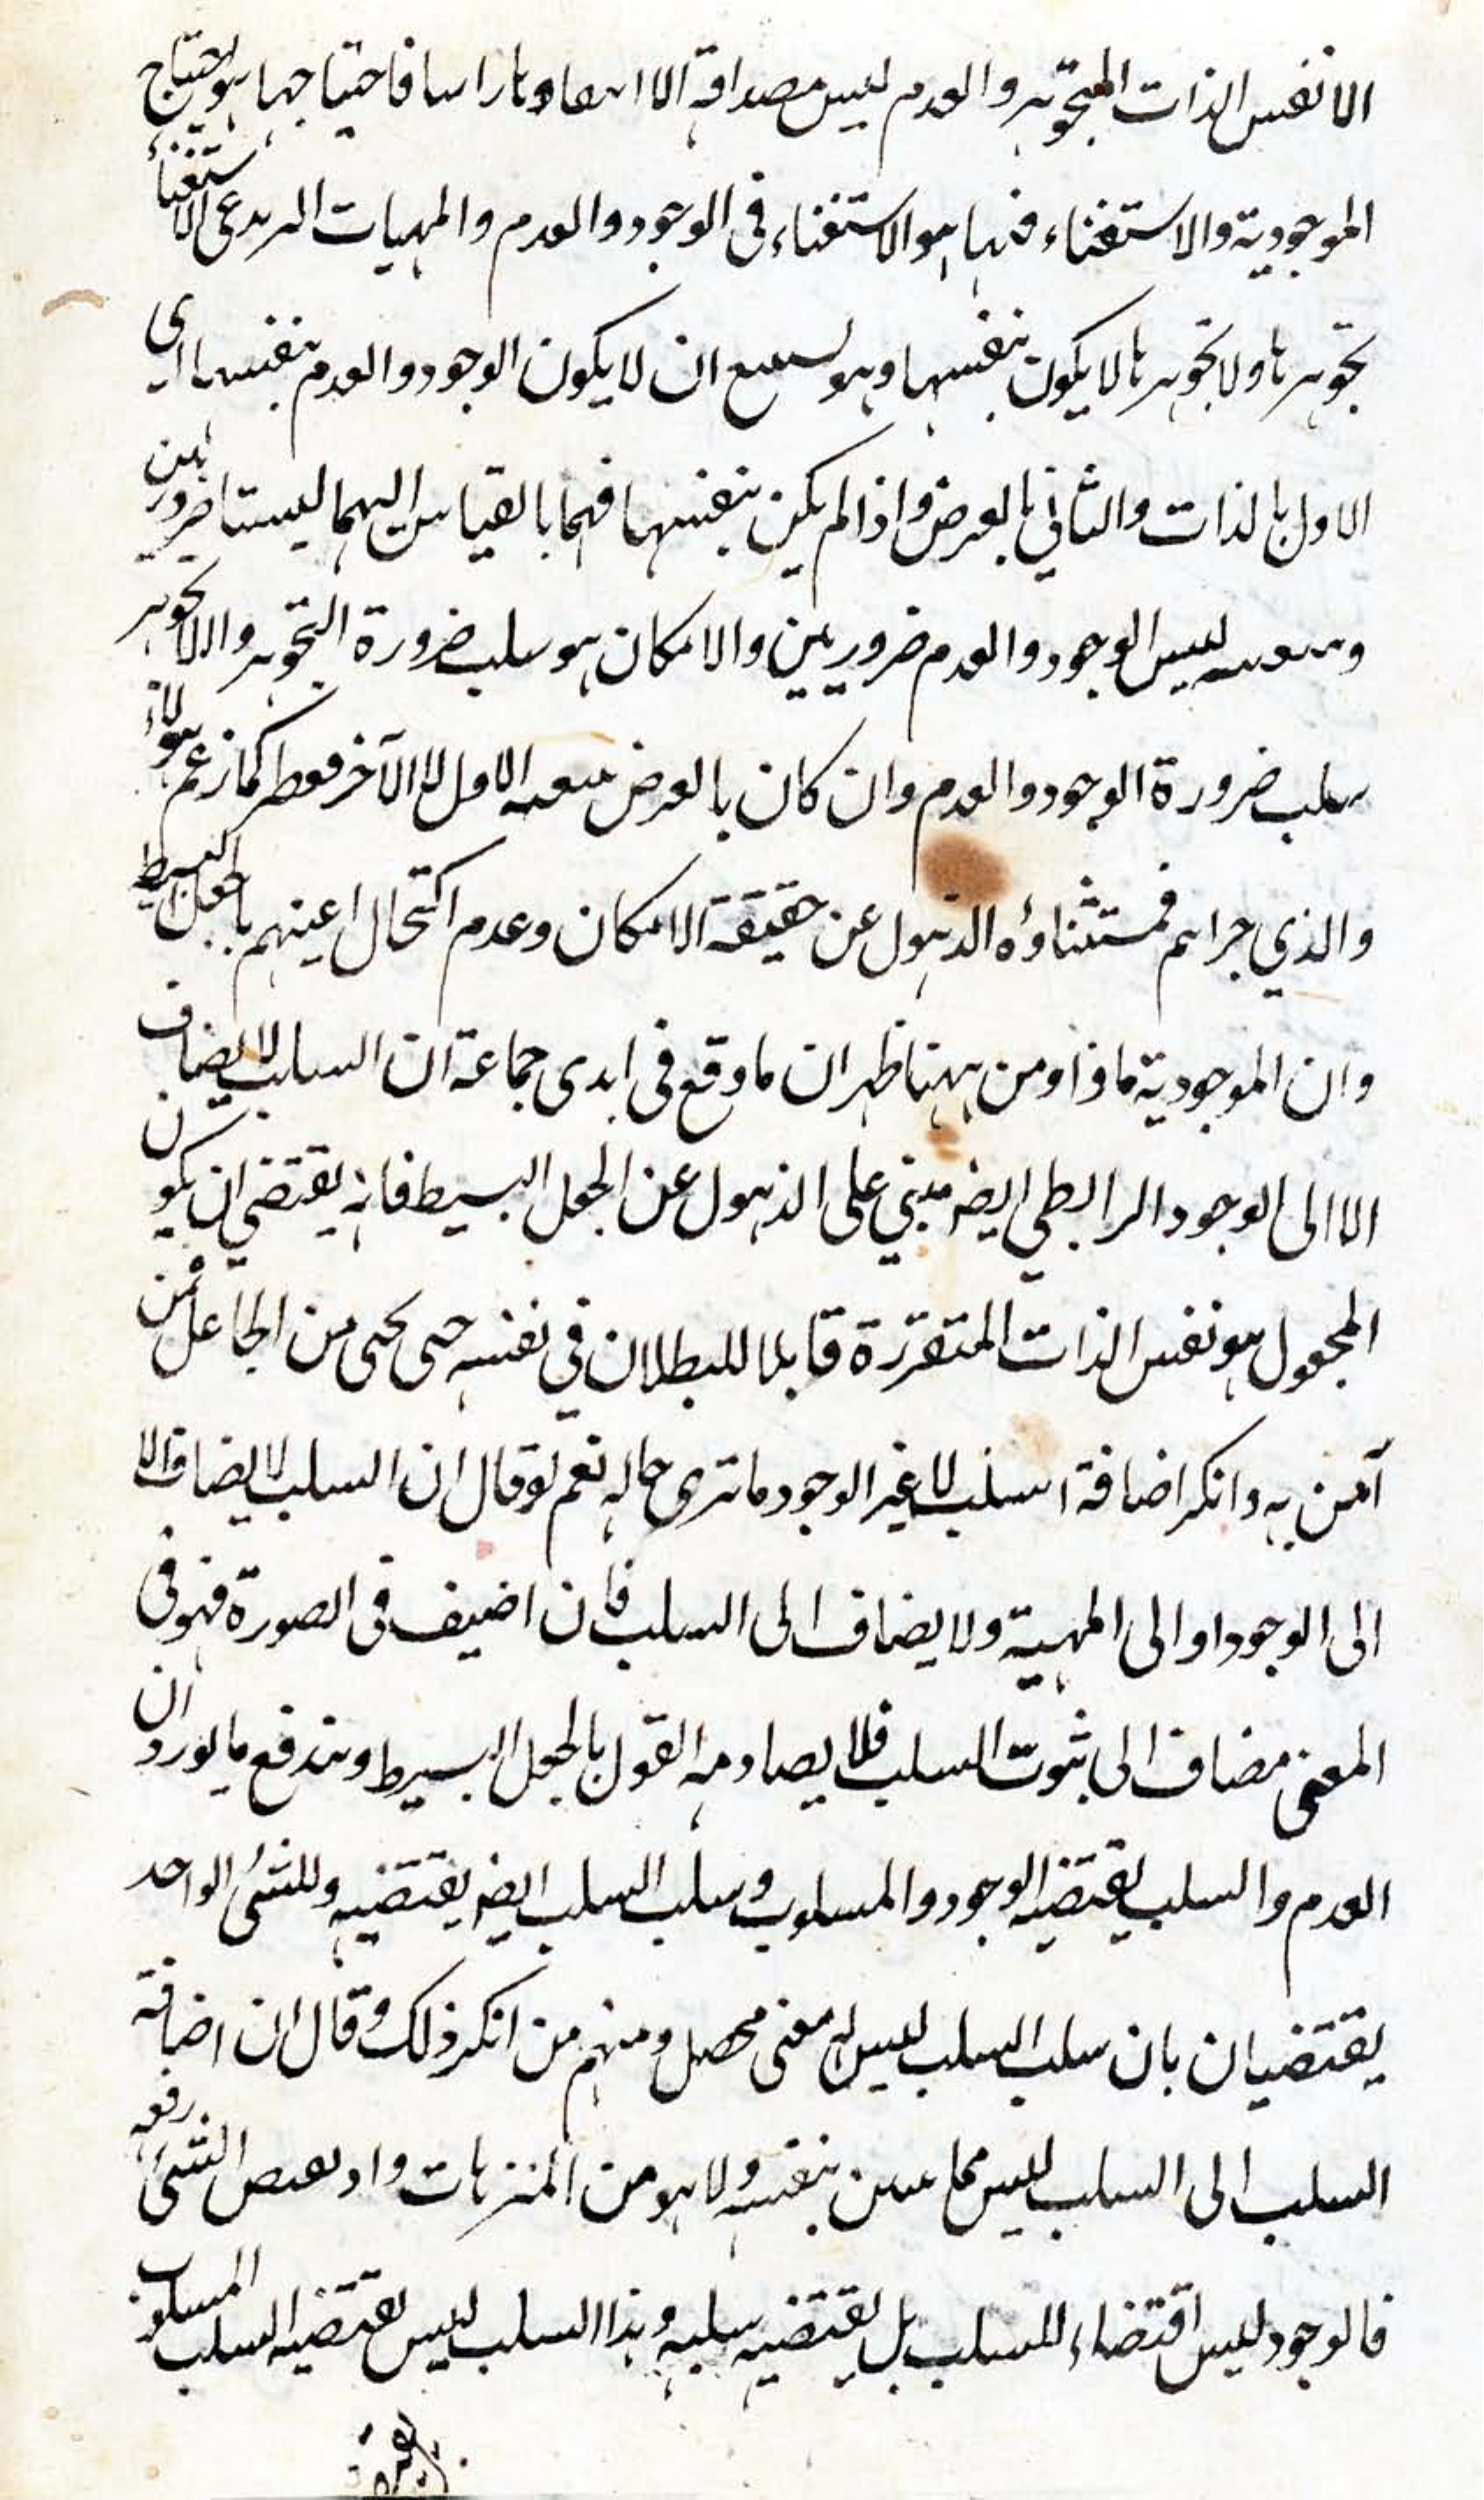 الا نفس الذات المتجوهرة والعدم ليس مصداقه الا انتفاءها راسا فاحتياجها هو احتياج
الموجودية والاستغناء فيها هو الاستغناء في الوجود والعدم والمهيات الاستغناء
تجوهرها ولا تجوهرها لا يكون بنفسها وهو ان لا يكون الوجود والعدم بنفسها اي
الاول بالذات والثاني بالعرض واذا لم يكن بنفسهما فهما بالقياس اليهما ليستا ضروريين
ليس الوجود والعدم ضروريين والامكان هو سلب ضرورة التجوهر واللاتجوهر
سلب ضرورة الوجود والعدم وان كان بالعرض الاول لا الآخر فقط كما زعم هؤلاء
والذي جراهم فمستثناؤه الذهول عن حقيقة الامكان وعدم اكتحال اعينهم بالجعل البسيط
وان الموجودية ماذا ومن ههنا ظهر ان ما وقع في ايدى جماعة ان السلب لا يضاف
الا الى الوجود الرابطي ايضه مبني على الذهول عن الجعل البسيط فانه يقتضي ان يكون
المجعول هو نفس الذات المتقررة قابلا للبطلان في نفسه حتى يحى من الجاعل فمن
آمن به وانكر اضافة السلب لا غير الوجود ما ترى حاله نعم لو قال ان السلب لا يضاف الا
الى الوجود او الى المهية ولا يضاف الى السلب فان اضيف في الصورة فهو في
المعنى مضاف الى ثبوت السلب فلا يصادمه القول بالجعل البسيط ويندفع ما يورد ان
العدم والسلب يقتضيه الوجود والمسلوب وسلب السلب ايضه يقتضيه وللشئ الواحد
يقتضيان بان سلب السلب ليس له معنى محصل ومنهم من انكر ذلك وقال ان اضافة
السلب الى السلب ليس مما بنفسه ولا هو من المنتزعات الشئ رفعه
فالوجود ليس اقتضاء للسلب بل يقتضيه سلبه وهذا السلب ليس يقتضيه السلب المسلوب